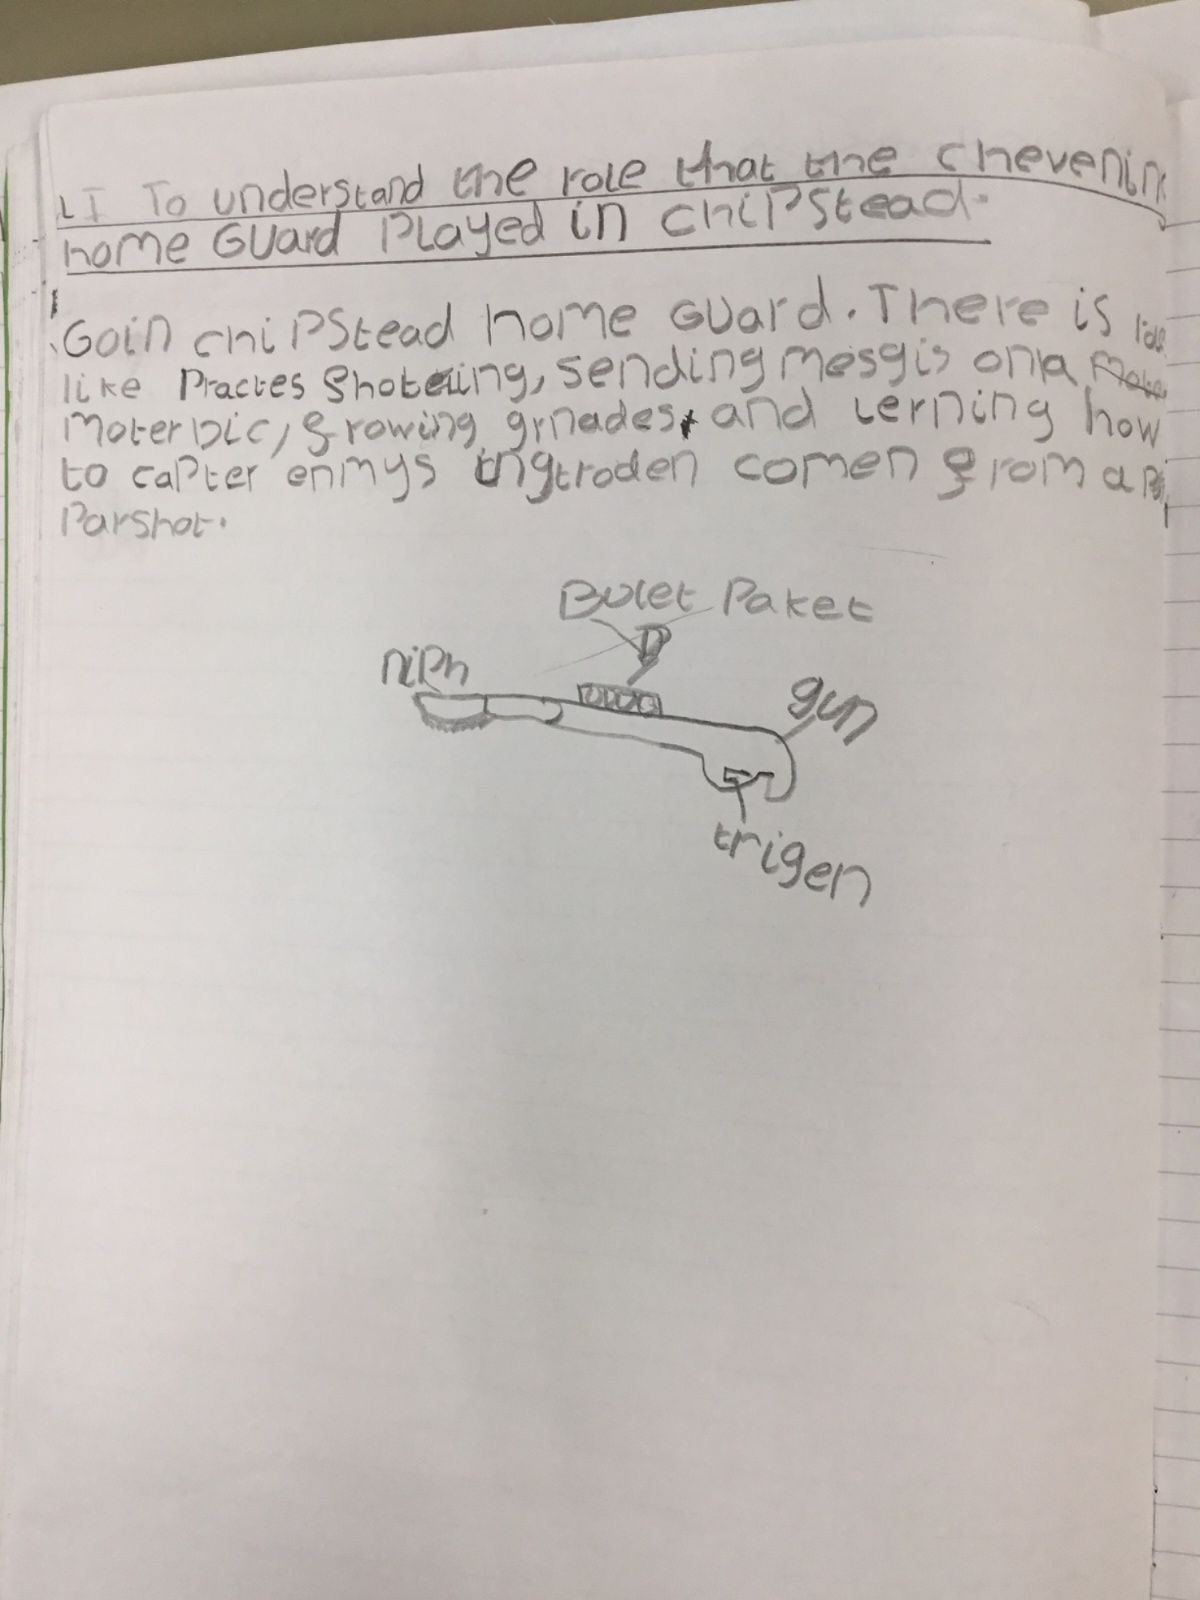 LI To understand the role that the chevening
home Guard Played in chipstead.
Goin chipstead home Guard. There is
like Practes Shoteing, sending mesgis on a
moter bic, frowing grnades, and lerning how
to capter enmys ingtroden comen from a
Parshot.
Bulet Paket
niph
gun
trigen